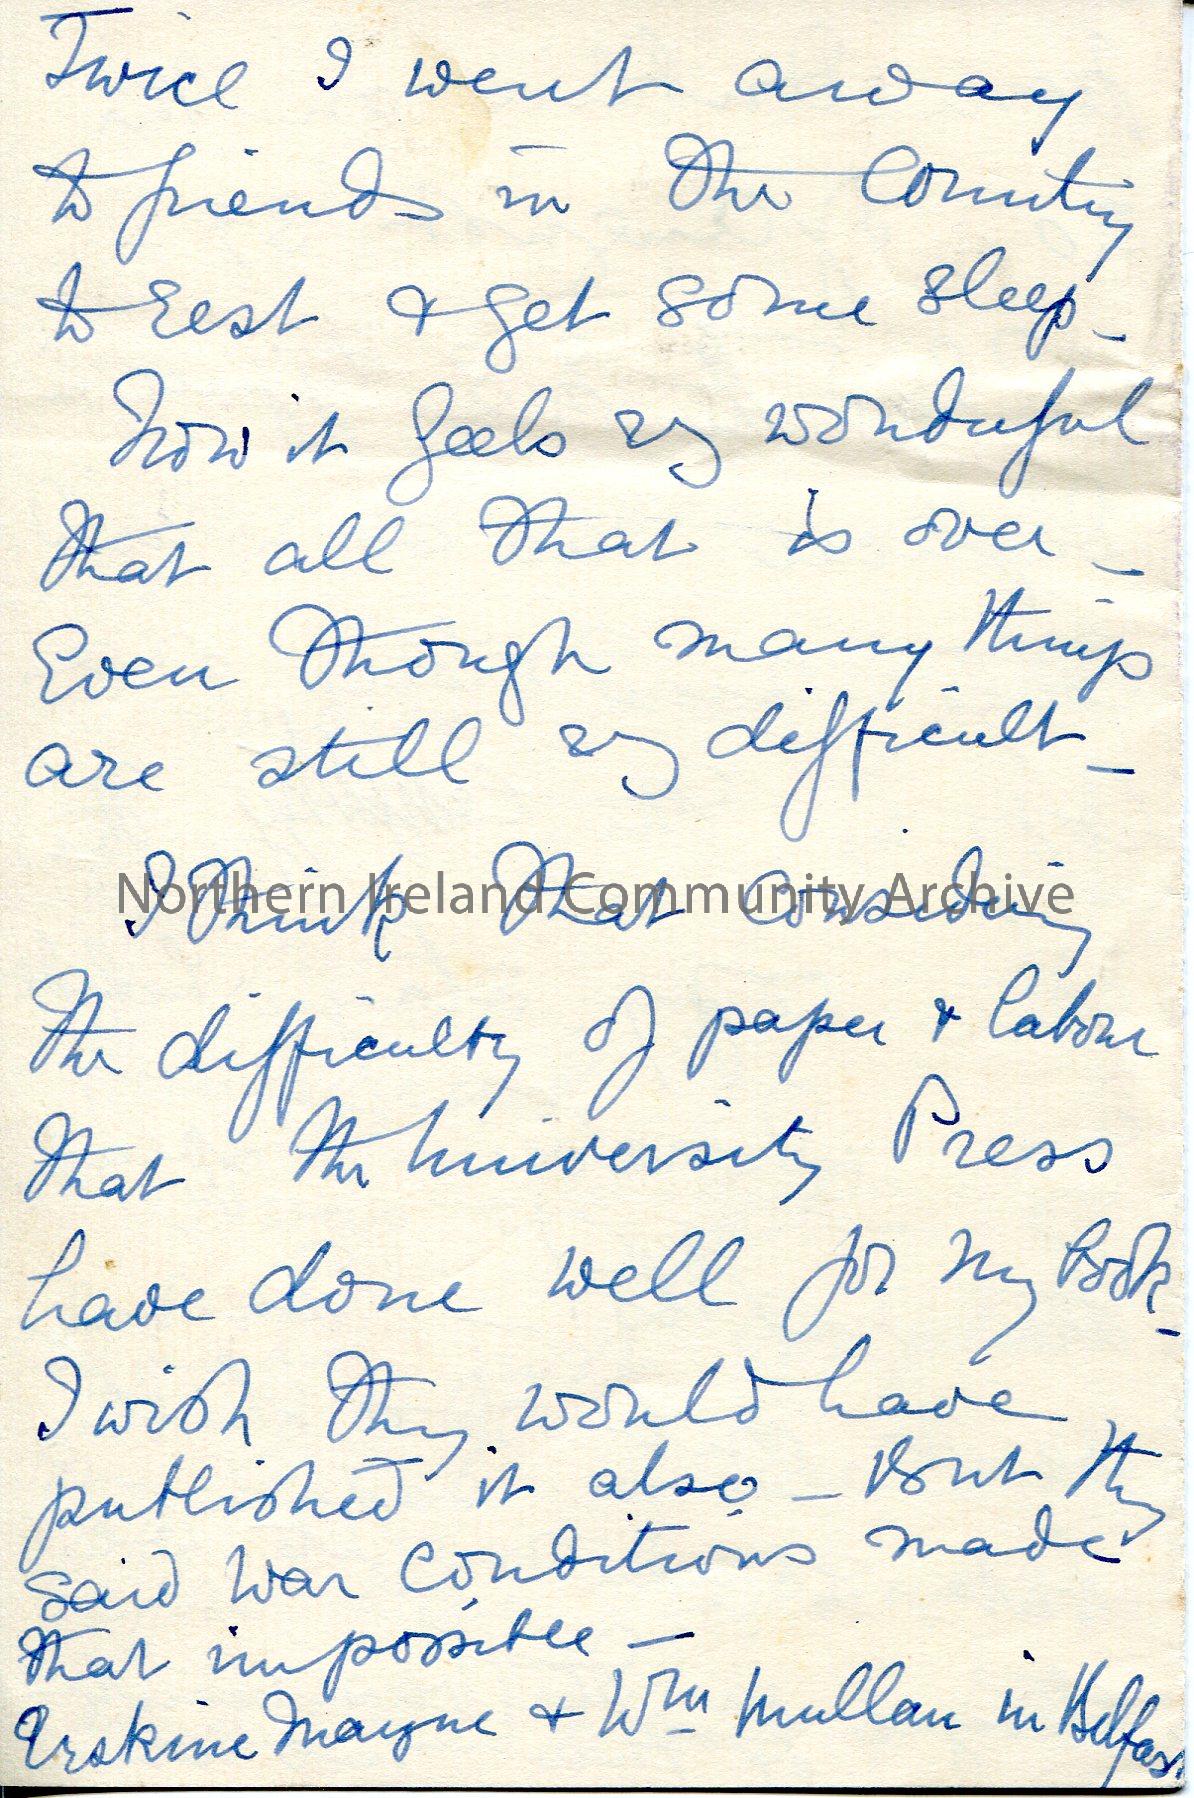 Twice I went away
to friends in the Country
to rest & get some sleep_
Now it feels vy wonderful
that all that is over_
Even though many things
are still vy difficult_
I think that considering
Northern Ireland Community Archive
the difficulty of paper & labour
that the University Press
have done well for my book_
I wish they would have
published it also_ But they
said War Conditions made
that impossible_
Erskine Mayne & Wm Mullan in Belfast